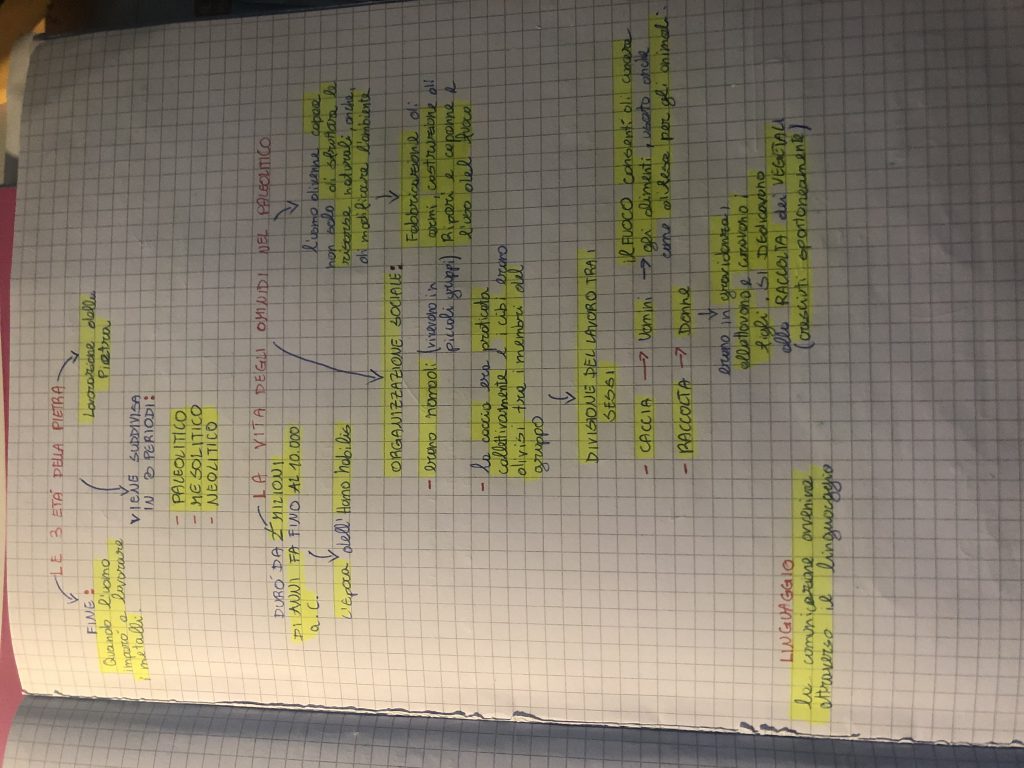 LE 3 ETÀ DELLA PIETRA
FINE:
Quando l'uomo
imparò a lavorare
i metalli.
VIENE SUDDIVISA
IN 3 PERIODI:
- PALEOLITICO
- MESOLITICO
- NEOLITICO
Lavorazione della
Pietra
LA VITA DEGLI OMINIDI NEL PALEOLITICO
DURÒ DA 2 MILIONI
DI ANNI FA FINO AL 10.000
a.C.
L'epoca dell'Homo habilis
l'uomo divenne capace
non solo di sfruttare le
risorse naturali, anche
di modificare l'ambiente
Fabbricazione di
armi, costruzione di
Ripari e capanne e
l'uso del fuoco
ORGANIZZAZIONE SOCIALE:
- erano nomadi (vivevano in
piccoli gruppi)
- la caccia era praticata
collettivamente e i cibi erano
divisi tra i membri del
gruppo
DIVISIONE DEL LAVORO TRA I
SESSI
- CACCIA → Uomini → il FUOCO consentì di cuocere
gli alimenti, usato anche
come difesa per gli animali.
- RACCOLTA → Donne
erano in gravidanza,
allattavano e curavano i
figli, SI DEdicavano
alla RACCOLTA dei VEGETALI
(cresciuti spontaneamente)
LINGUAGGIO
la comunicazione avveniva
attraverso il linguaggio